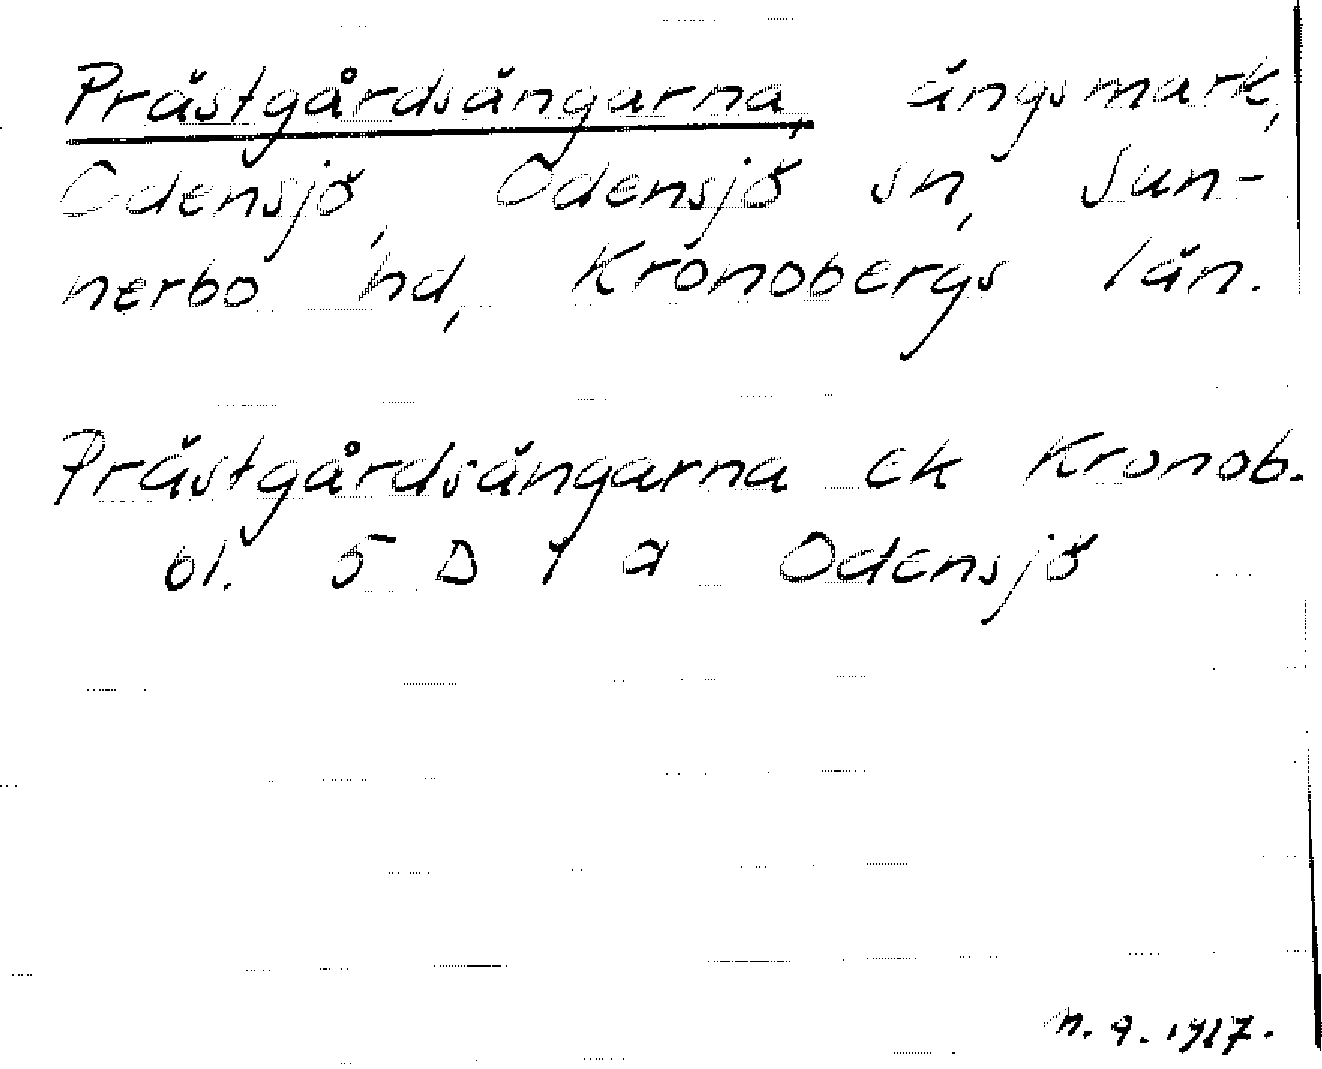 Prästgårdsängarna, ängsmark,
Odensjö, Odensjö sn, Sun-
nerbo hd, Kronobergs län.
Prästgårdsängarna ek Kronob.
bl. 5 D 1 d Odensjö